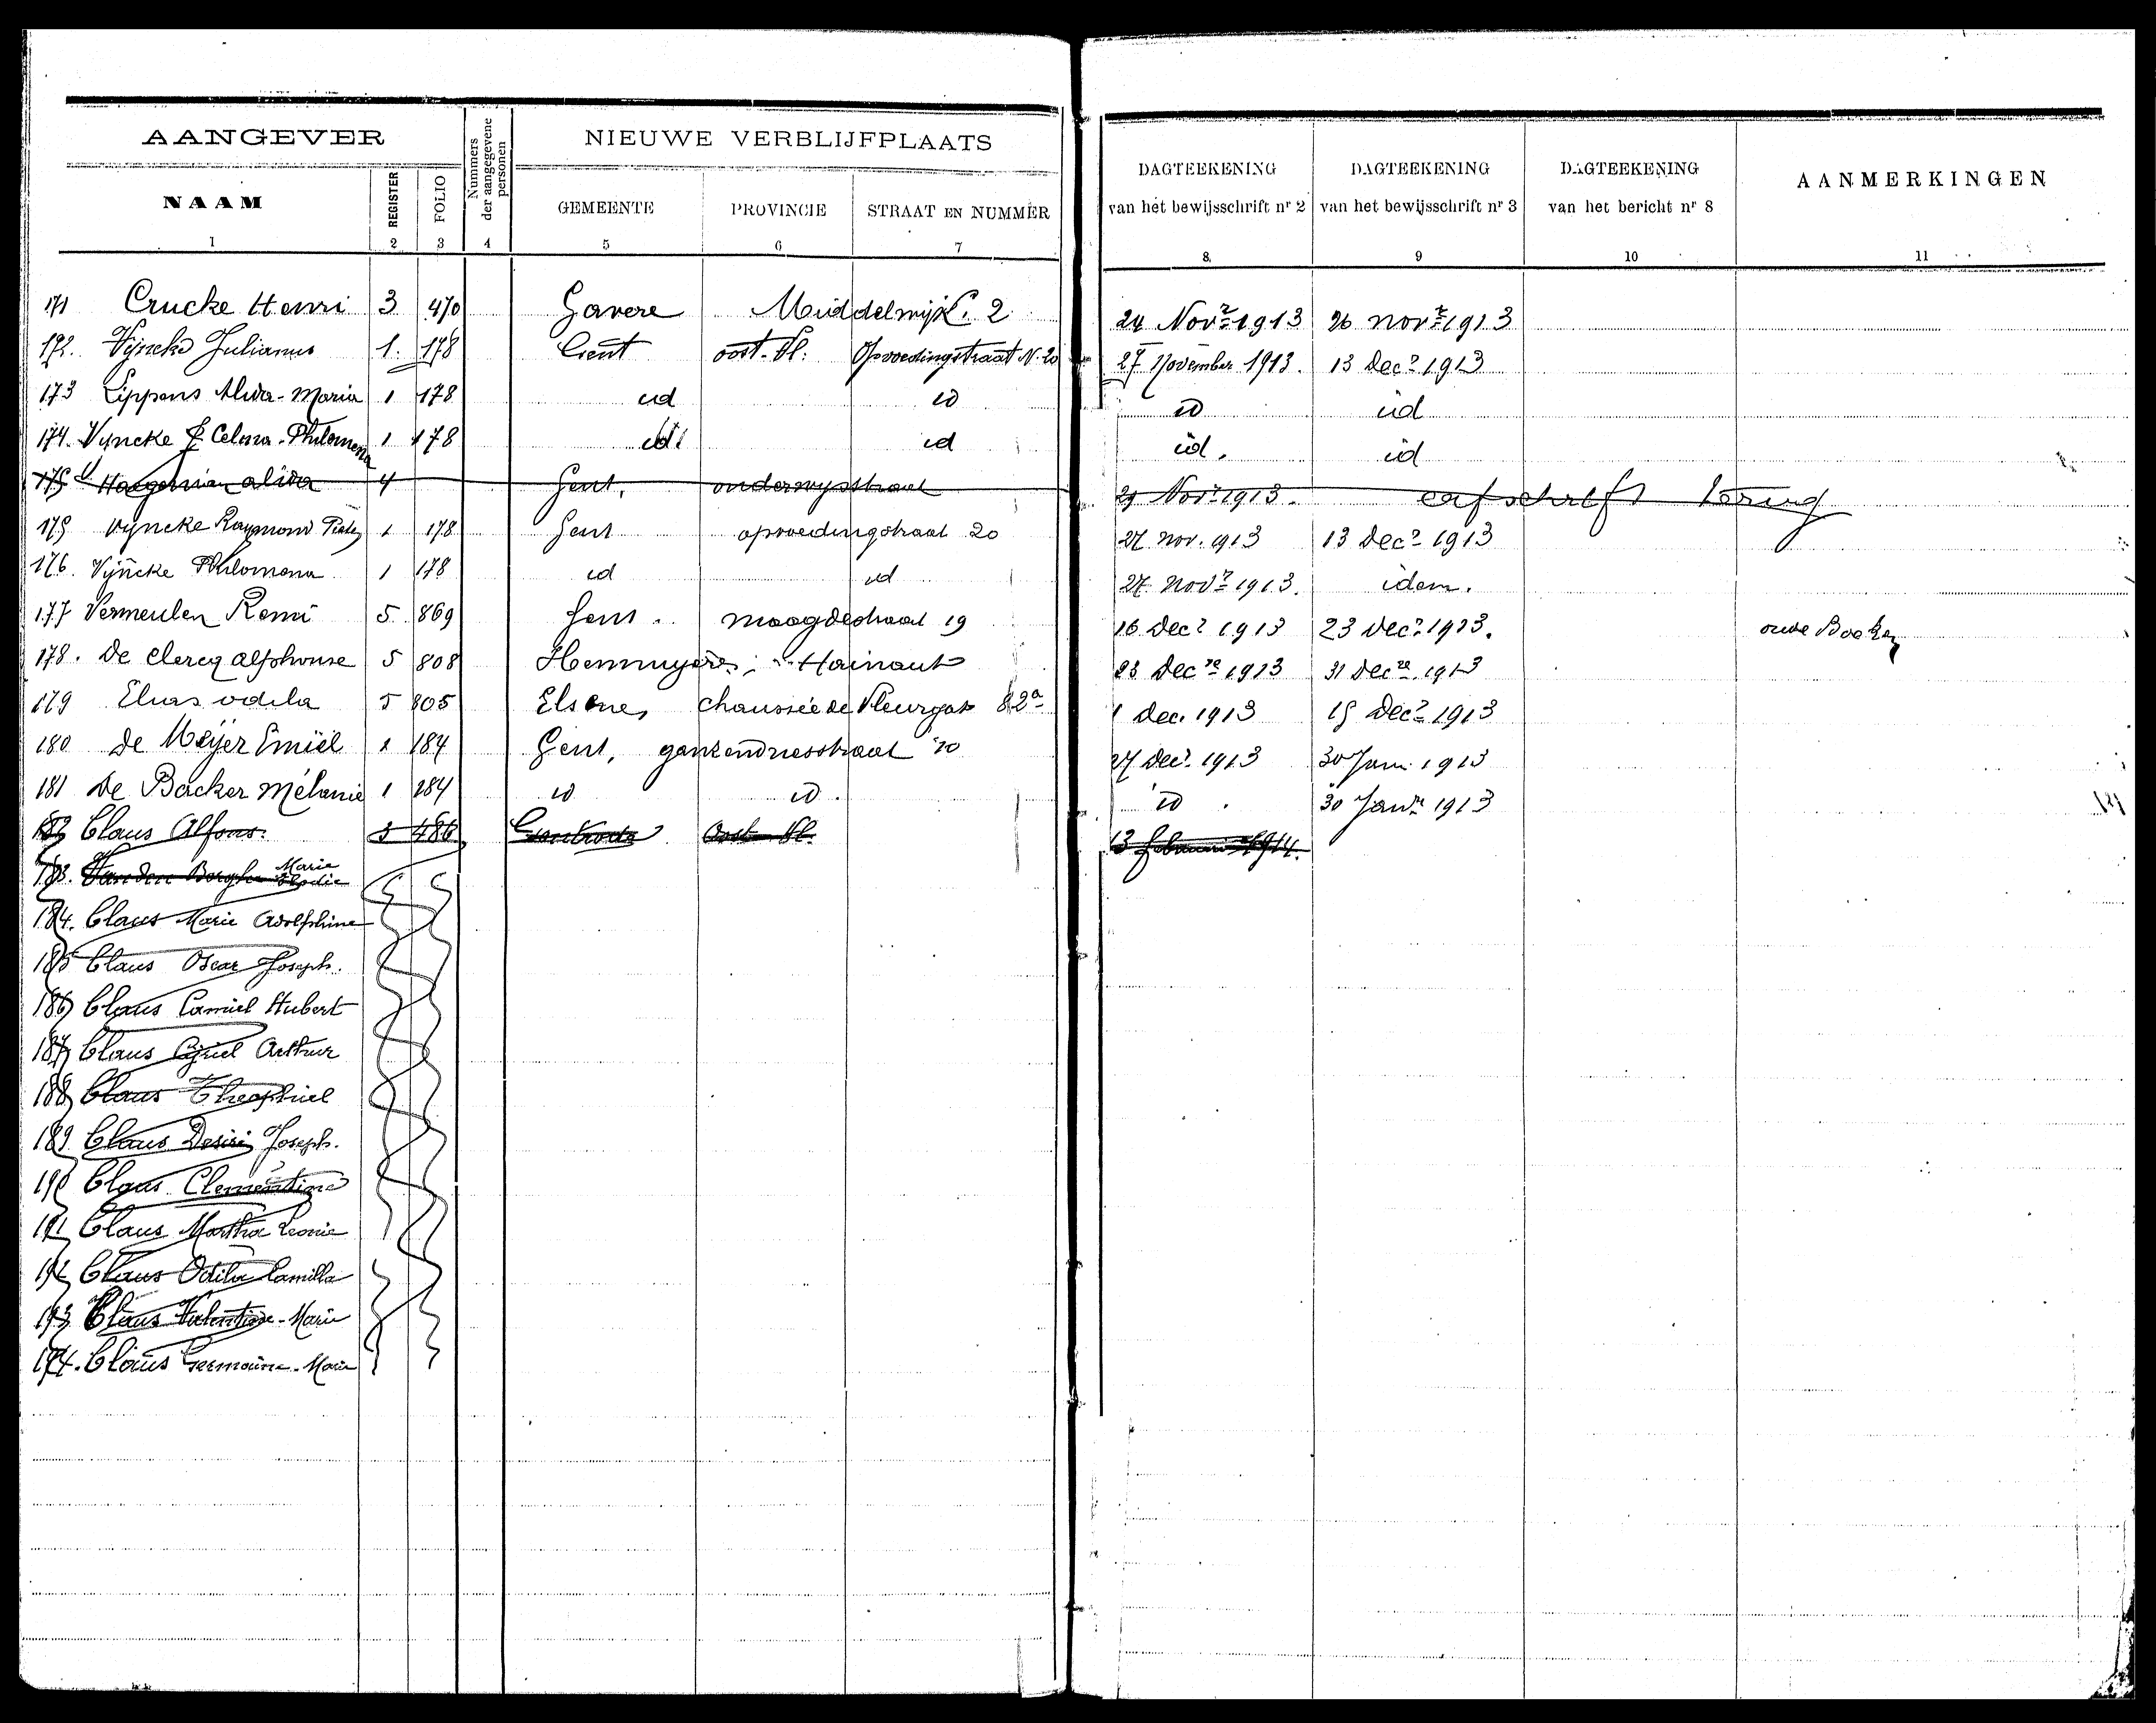 AANGEVER
Nummers der aangegevene personen
NIEUWE VERBLIJFPLAATS
DAGTEEKENING van het bewijsschrift nr 2
DAGTEEKENING van het bewijsschrift nr 3
DAGTEEKENING van het bericht nr 8
AANMERKINGEN
NAAM REGISTER FOLIO GEMEENTE PROVINCIE STRAAT EN NUMMER
1 2 3 4 5 6 7 8. 9 10 11
171 Crucke Henri 3 470 Gavere Middelwijk 2 24 Novr 1913 26 novr 1913
172. Vyncke Julianus 1. 178 Gent oost-Vl. Opvoedingstraat N. 20 27 November 1913. 13 Decr 1913
173 Lippens Maria 1 178 id id id id
174. Vyncke Celma-Philomena 1 178 id id id. id
175 Haegeman alida 4 Gent, onderwijsstraat 29 Novr 1913.
175 Vyncke Raymond 1 178 Gent opvoedingstraat 20 27 nov. 1913 13 Decr 1913
176. Vyncke Philomena 1 178 id id 27 Novr 1913. idem.
177 Vermeulen Remi 5 869 Gent. maagdestraat 19 16 Decr 1913 23 Decr 1913.
178. De Clercq alphonse 5 808 Hennuyères, Hainaut 23 Decre 1913 31 Decre 1913
179 Elias odila 5 805 Elsene, chaussée de Vleurgat 82a 1 Dec. 1913 15 Decr 1913
180 De Meijer Emiel 1 184 Gent, ganzendriesstraat 70 27 Decr 1913 30 Jan. 1913
181 De Backer Mélanie 1 184 id id. id. 30 Janr 1913
182 Claus Alfons. 3 486 Gontrode Oost-Vl. 13 Februari 1914.
183. Vanden Berghe Marie Elodie
184. Claus Marie Adolphine
185 Claus Oscar Joseph.
186 Claus Camiel Hubert
187 Claus Cyriel Arthur
188 Claus Theophiel
189 Claus Desiré Joseph.
190 Claus Clementine
191 Claus Martha Leonie
192 Claus Odila Camilla
193 Claus Valentine-Marie
194. Claus Germaine-Marie